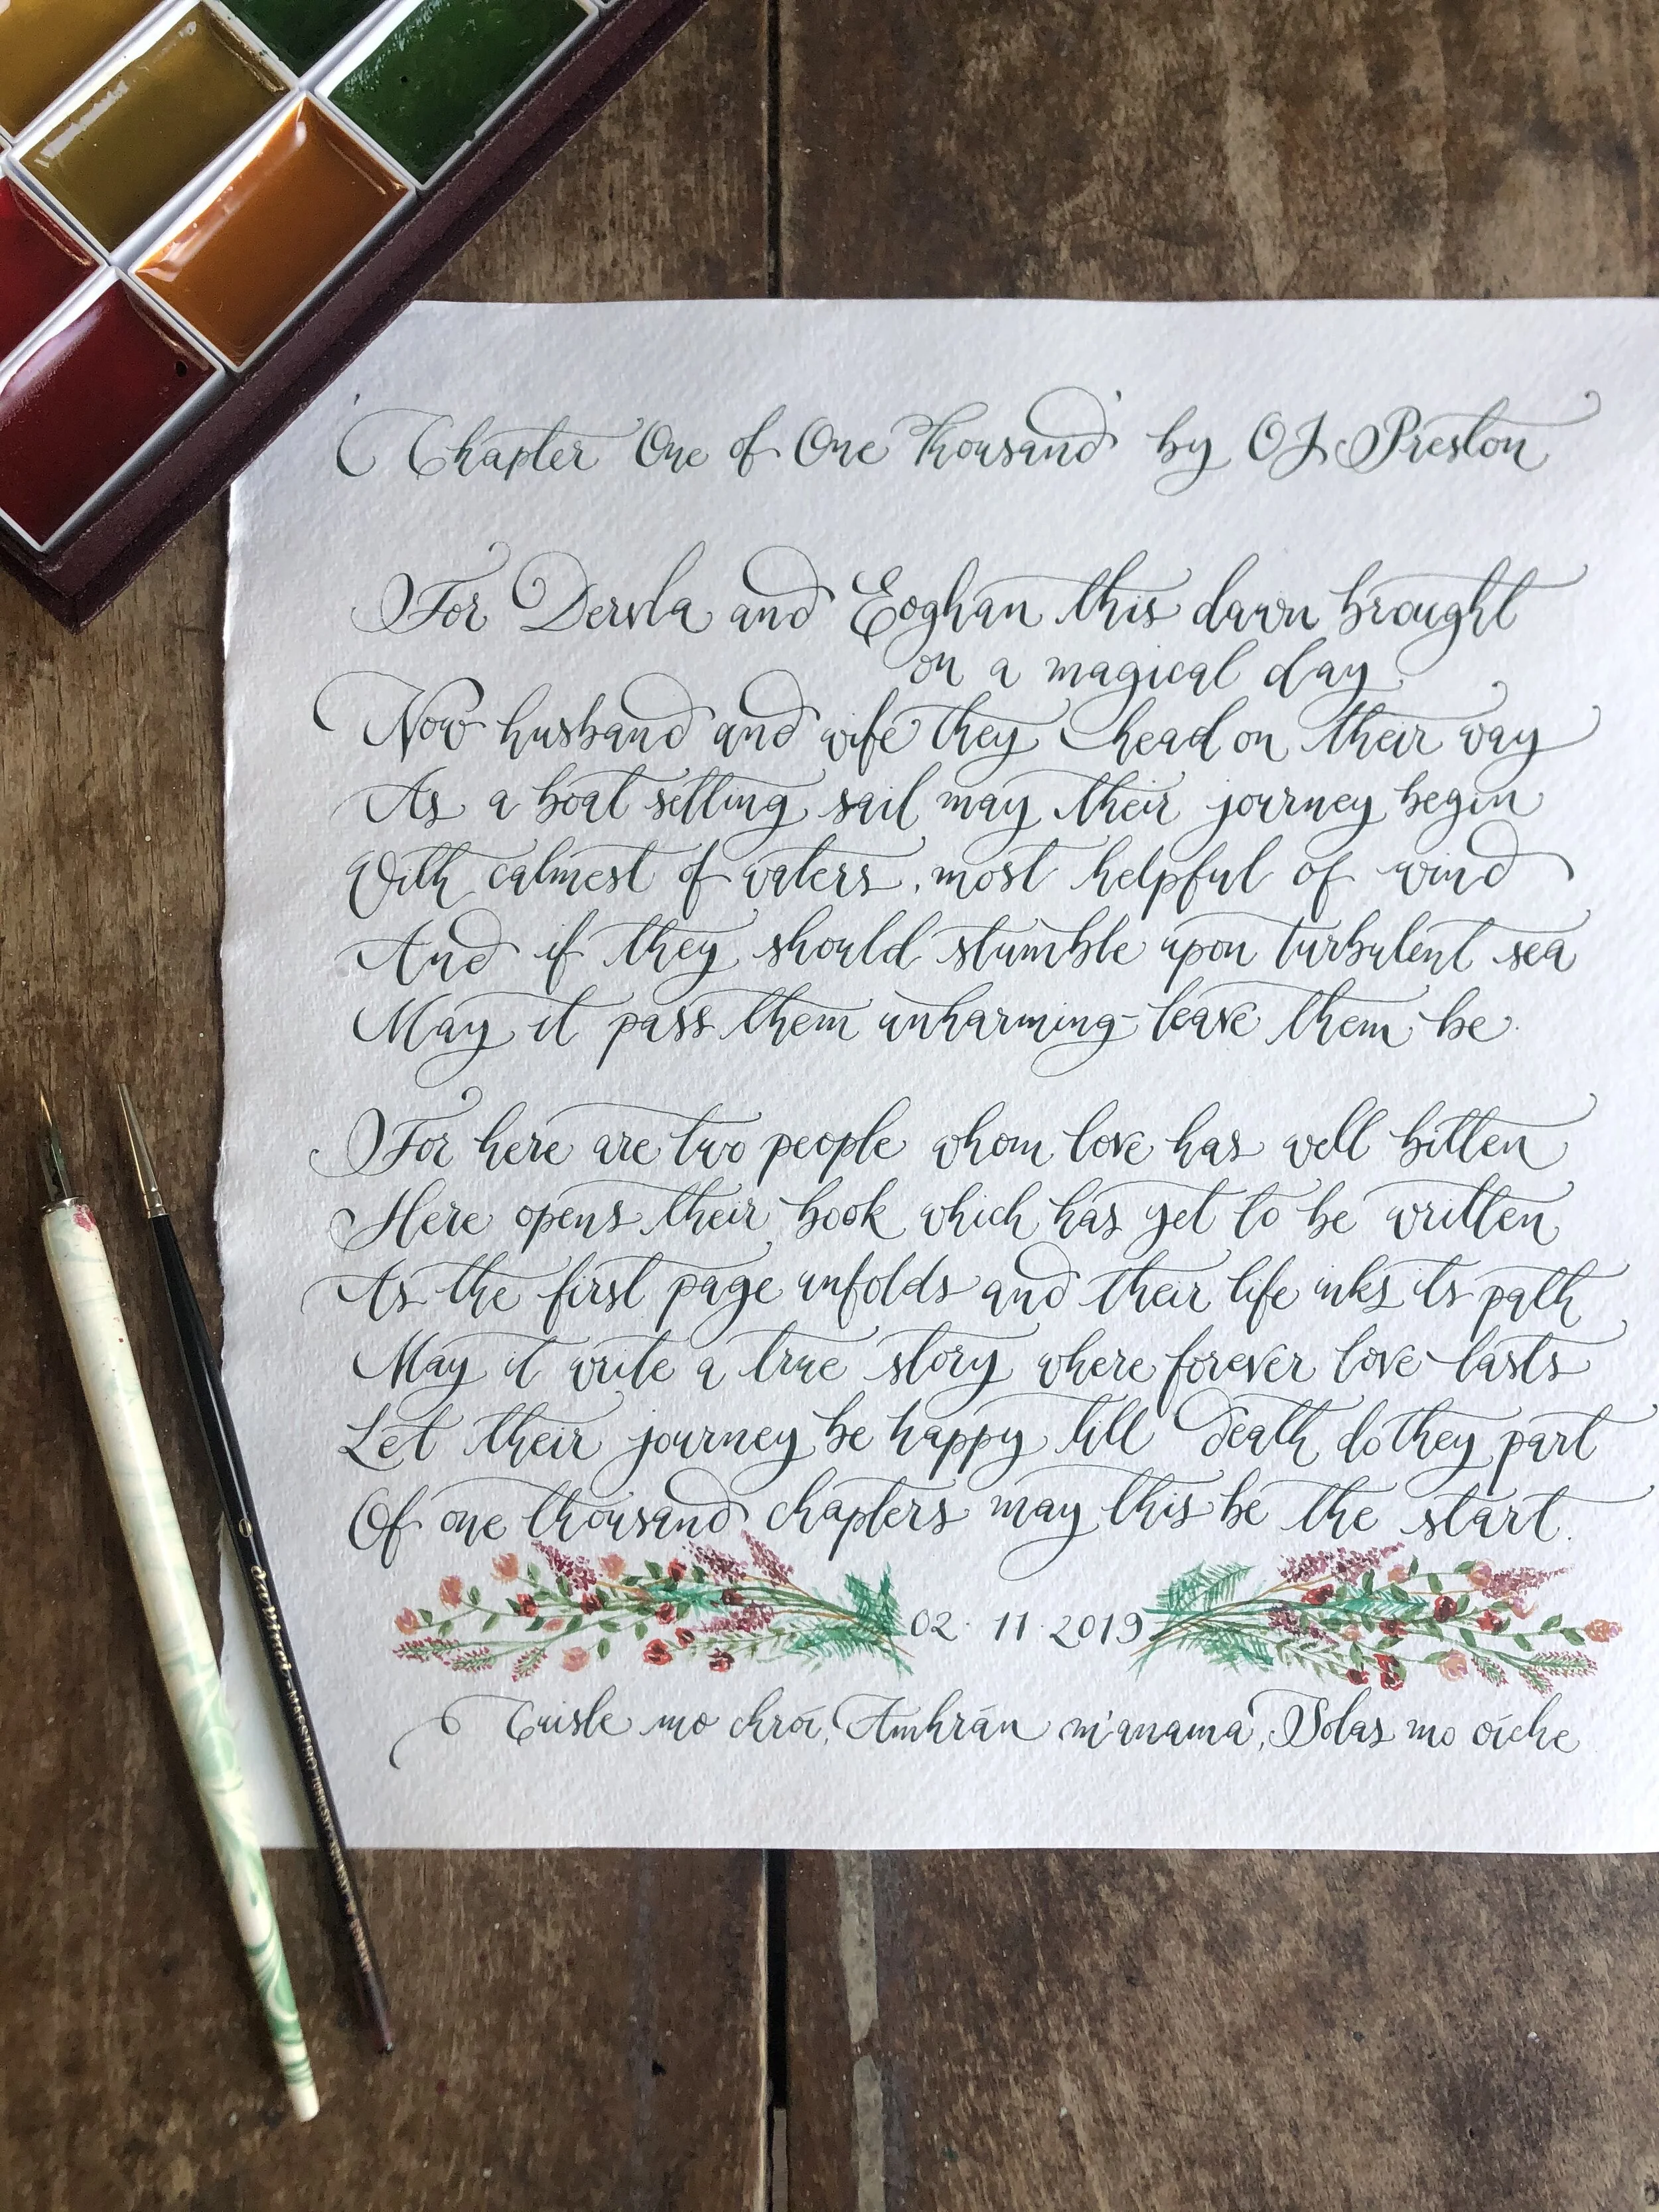 'Chapter One of One Thousand' by OJ Preston
For Dervla and Eoghan this dawn brought
on a magical day
Now husband and wife they head on their way
As a boat setting sail may their journey begin
With calmest of waters, most helpful of wind
And if they should stumble upon turbulent sea
May it pass them unharming - leave them be.
For here are two people whom love has well bitten
Here opens their book which has yet to be written
As the first page unfolds and their life inks its path
May it write a true story where forever love lasts
Let their journey be happy till death do they part
Of one thousand chapters may this be the start.
02. 11. 2019
Cuisle mo chroí, Amhrán m'anama, Solas mo oíche
davinci - MAESTRO